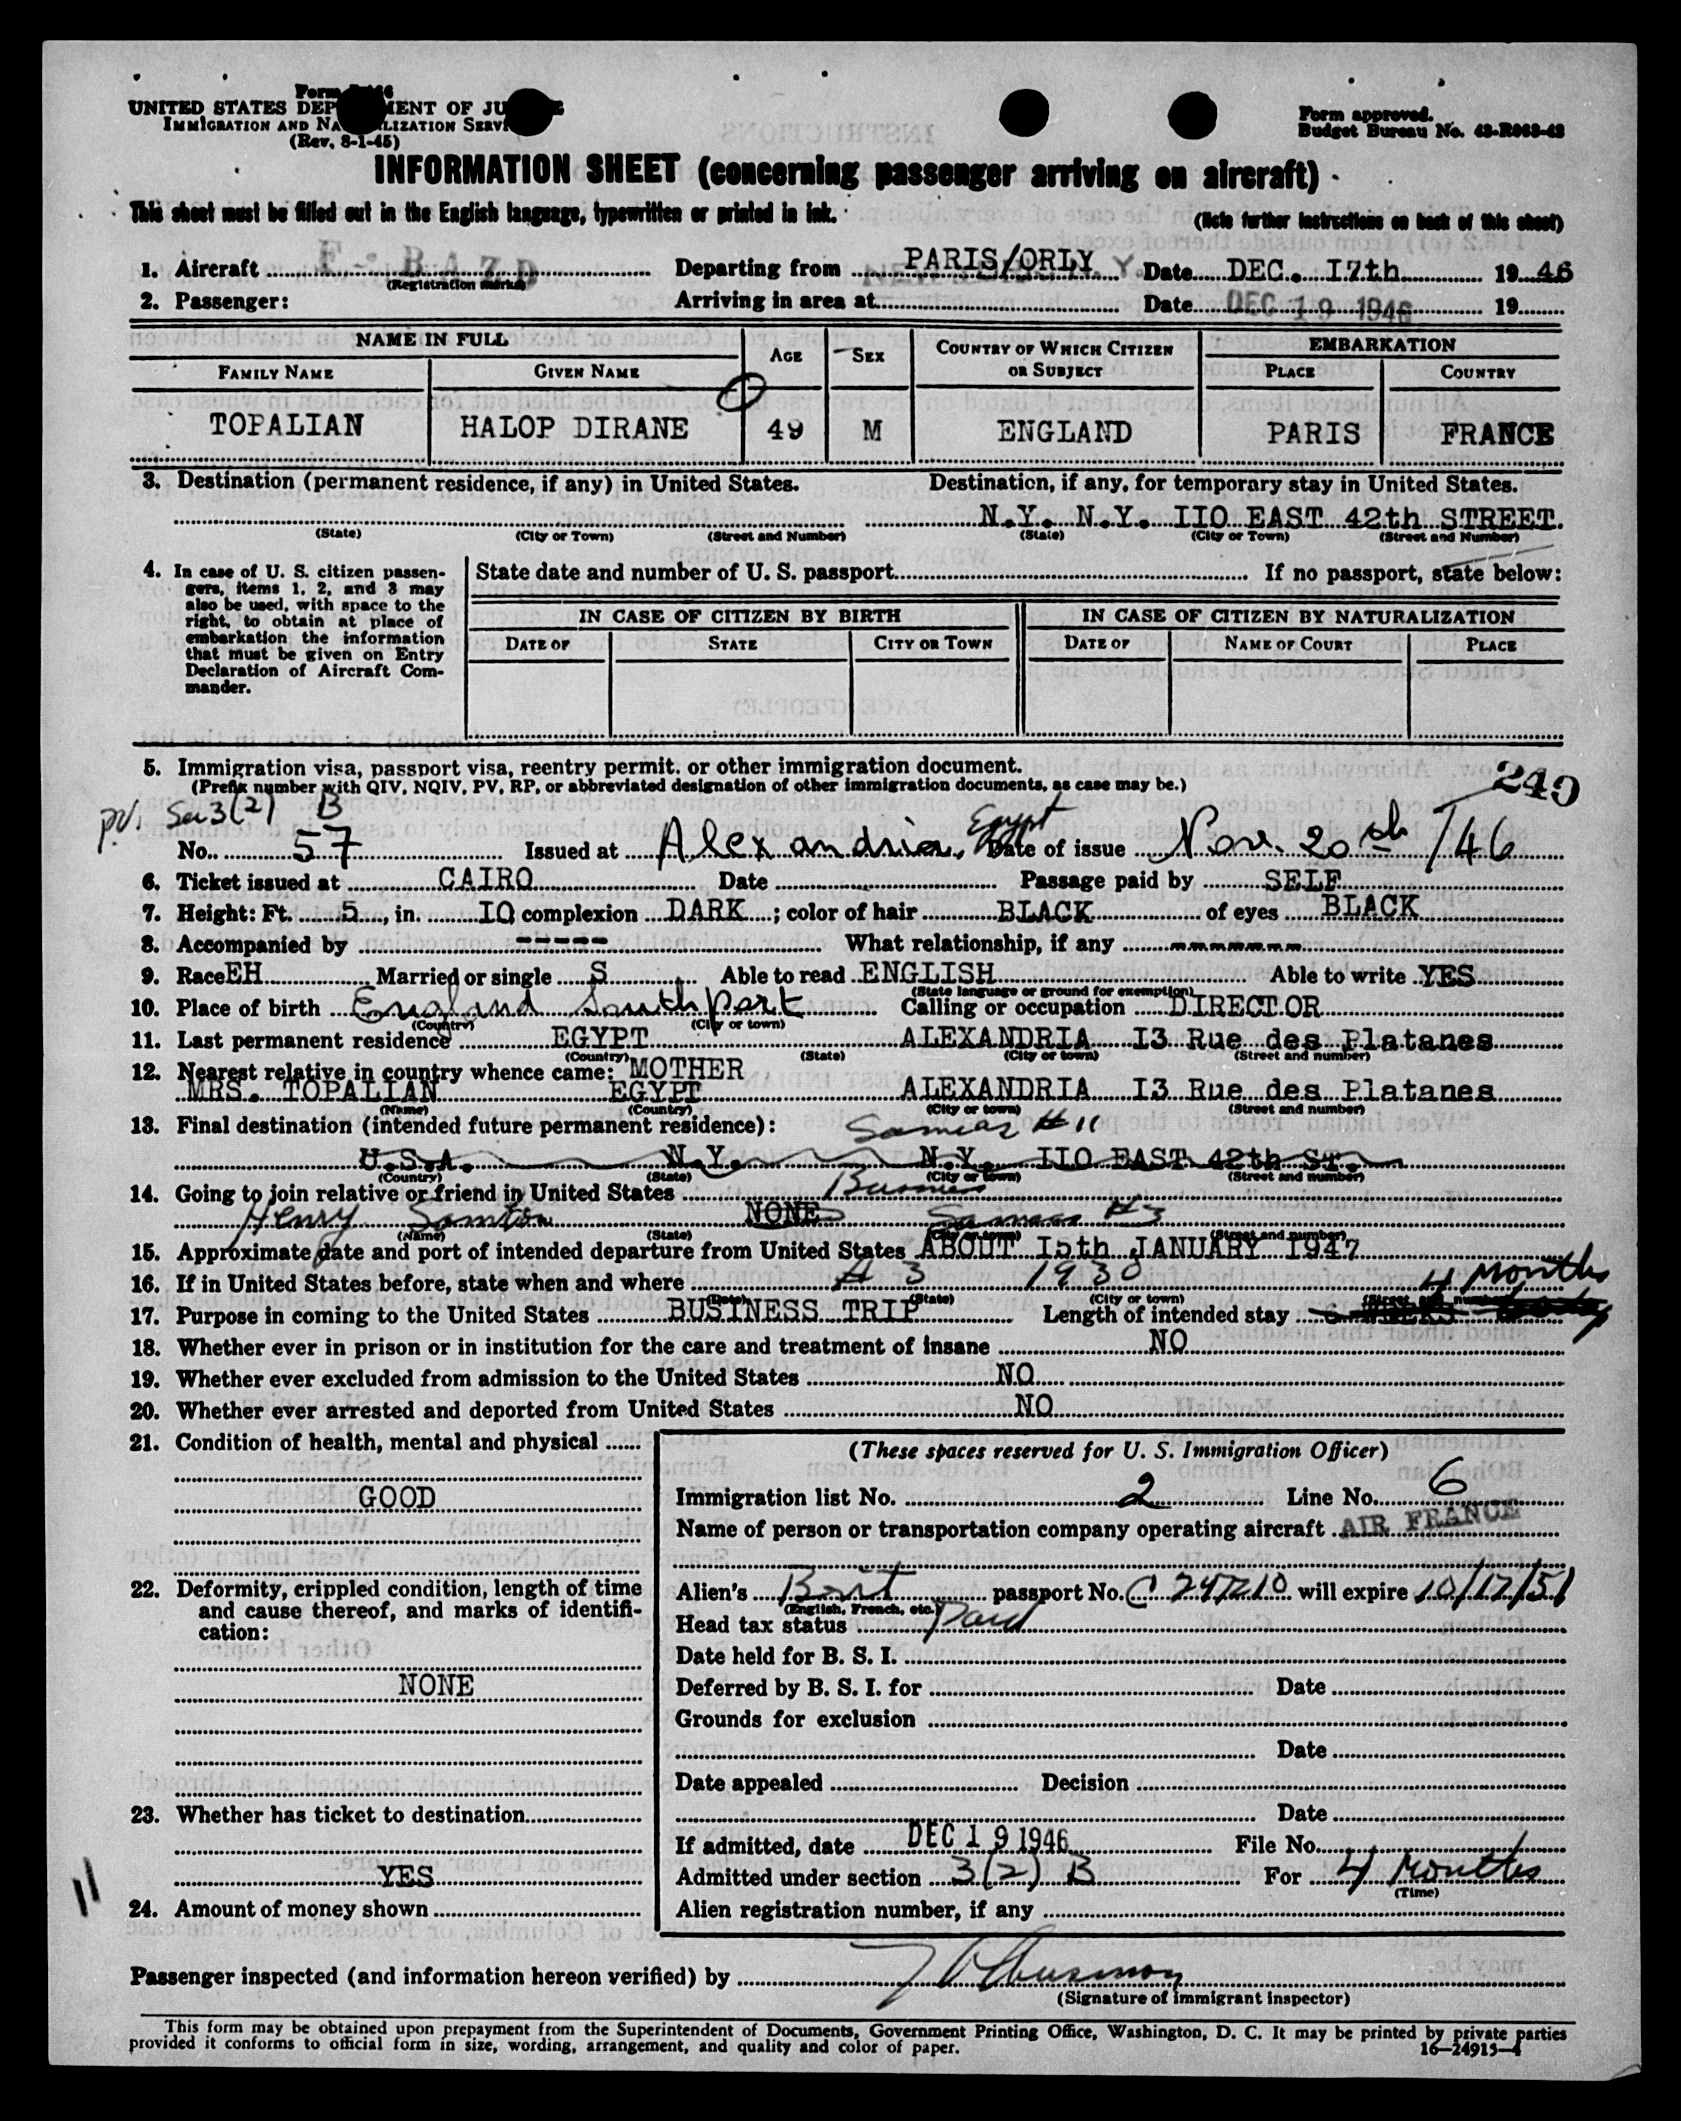 UNITED STATES DEP MENT OF JU
IMMIGRATION AND NA LIZATION SERV
(Rev. 8-1-45)
Form approved.
Budget Bureau No. 43-R063-42
INFORMATION SHEET (concerning passenger arriving on aircraft)
This sheet must be filled out in the English language, typewritten or printed in ink.
(Note further instructions on back of this sheet)
1. Aircraft F - B A Z D Departing from PARIS/ORLY Date DEC. I7th 19 46
(Registration marks)
2. Passenger: Arriving in area at Date DEC 19 1946 19
NAME IN FULL AGE SEX COUNTRY OF WHICH CITIZEN OR SUBJECT EMBARKATION
FAMILY NAME GIVEN NAME PLACE COUNTRY
TOPALIAN HALOP DIRANE 49 M ENGLAND PARIS FRANCE
3. Destination (permanent residence, if any) in United States. Destination, if any, for temporary stay in United States.
N.Y. N.Y. IIO EAST 42th STREET.
(State) (City or Town) (Street and Number) (State) (City or Town) (Street and Number)
4. In case of U. S. citizen passengers, items 1, 2, and 3 may also be used, with space to the right, to obtain at place of embarkation the information that must be given on Entry Declaration of Aircraft Commander.
State date and number of U. S. passport If no passport, state below:
IN CASE OF CITIZEN BY BIRTH IN CASE OF CITIZEN BY NATURALIZATION
DATE OF STATE CITY OR TOWN DATE OF NAME OF COURT PLACE
5. Immigration visa, passport visa, reentry permit, or other immigration document.
(Prefix number with QIV, NQIV, PV, RP, or abbreviated designation of other immigration documents, as case may be.)
249
PV. Sec 3(2) B
No. 57 Issued at Alexandria, Egypt Date of issue Nov. 20th /46
6. Ticket issued at CAIRO Date Passage paid by SELF
7. Height: Ft. 5, in. IO complexion DARK; color of hair BLACK of eyes BLACK
8. Accompanied by ----- What relationship, if any -------
9. Race EH Married or single S Able to read ENGLISH Able to write YES
(State language or ground for exemption)
10. Place of birth England Southport Calling or occupation DIRECTOR
(Country) (City or town)
11. Last permanent residence EGYPT ALEXANDRIA I3 Rue des Platanes
(Country) (State) (City or town) (Street and number)
12. Nearest relative in country whence came: MOTHER
MRS. TOPALIAN EGYPT ALEXANDRIA I3 Rue des Platanes
(Name) (Country) (City or town) (Street and number)
13. Final destination (intended future permanent residence): Same as # 11
U.S.A. N.Y. N.Y. IIO EAST 42th ST.
(Country) (State) (City or town) (Street and number)
14. Going to join relative or friend in United States Business
Henry NONE Same as #3
(Name) (State) (City or town) (Street and number)
15. Approximate date and port of intended departure from United States ABOUT I5th JANUARY 1947
16. If in United States before, state when and where 1930 4 Months
(Date) (State) (City or town) (Street and number)
17. Purpose in coming to the United States BUSINESS TRIP Length of intended stay
18. Whether ever in prison or in institution for the care and treatment of insane NO
19. Whether ever excluded from admission to the United States NO
20. Whether ever arrested and deported from United States NO
21. Condition of health, mental and physical
GOOD
22. Deformity, crippled condition, length of time and cause thereof, and marks of identification:
NONE
23. Whether has ticket to destination
YES
24. Amount of money shown
11
(These spaces reserved for U. S. Immigration Officer)
Immigration list No. 2 Line No. 6
Name of person or transportation company operating aircraft AIR FRANCE
Alien's Brit passport No. C 247210 will expire 10/17/51
(English, French, etc.)
Head tax status Paid
Date held for B. S. I.
Deferred by B. S. I. for Date
Grounds for exclusion
Date
Date appealed Decision
Date
If admitted, date DEC 19 1946 File No.
Admitted under section 3(2) B For 4 Months
(Time)
Alien registration number, if any
Passenger inspected (and information hereon verified) by
(Signature of immigrant inspector)
This form may be obtained upon prepayment from the Superintendent of Documents, Government Printing Office, Washington, D. C. It may be printed by private parties
provided it conforms to official form in size, wording, arrangement, and quality and color of paper. 16—24915-4